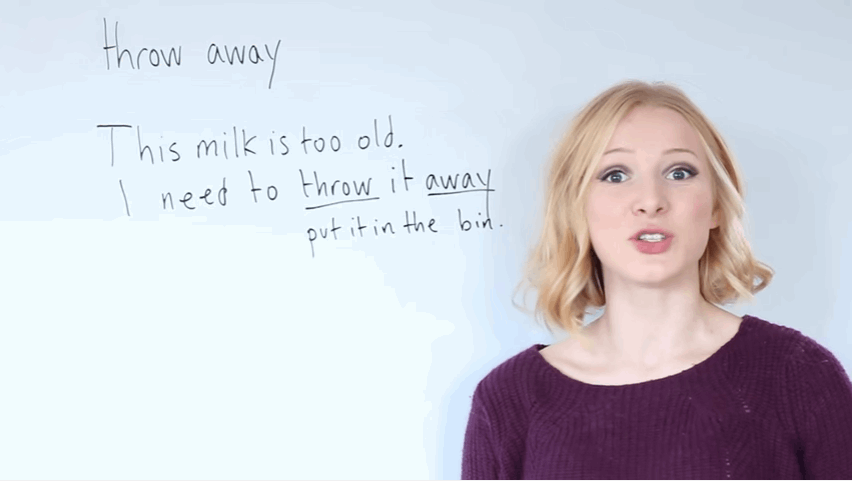 throw away
This milk is too old.
I need to throw it away
put it in the bin.